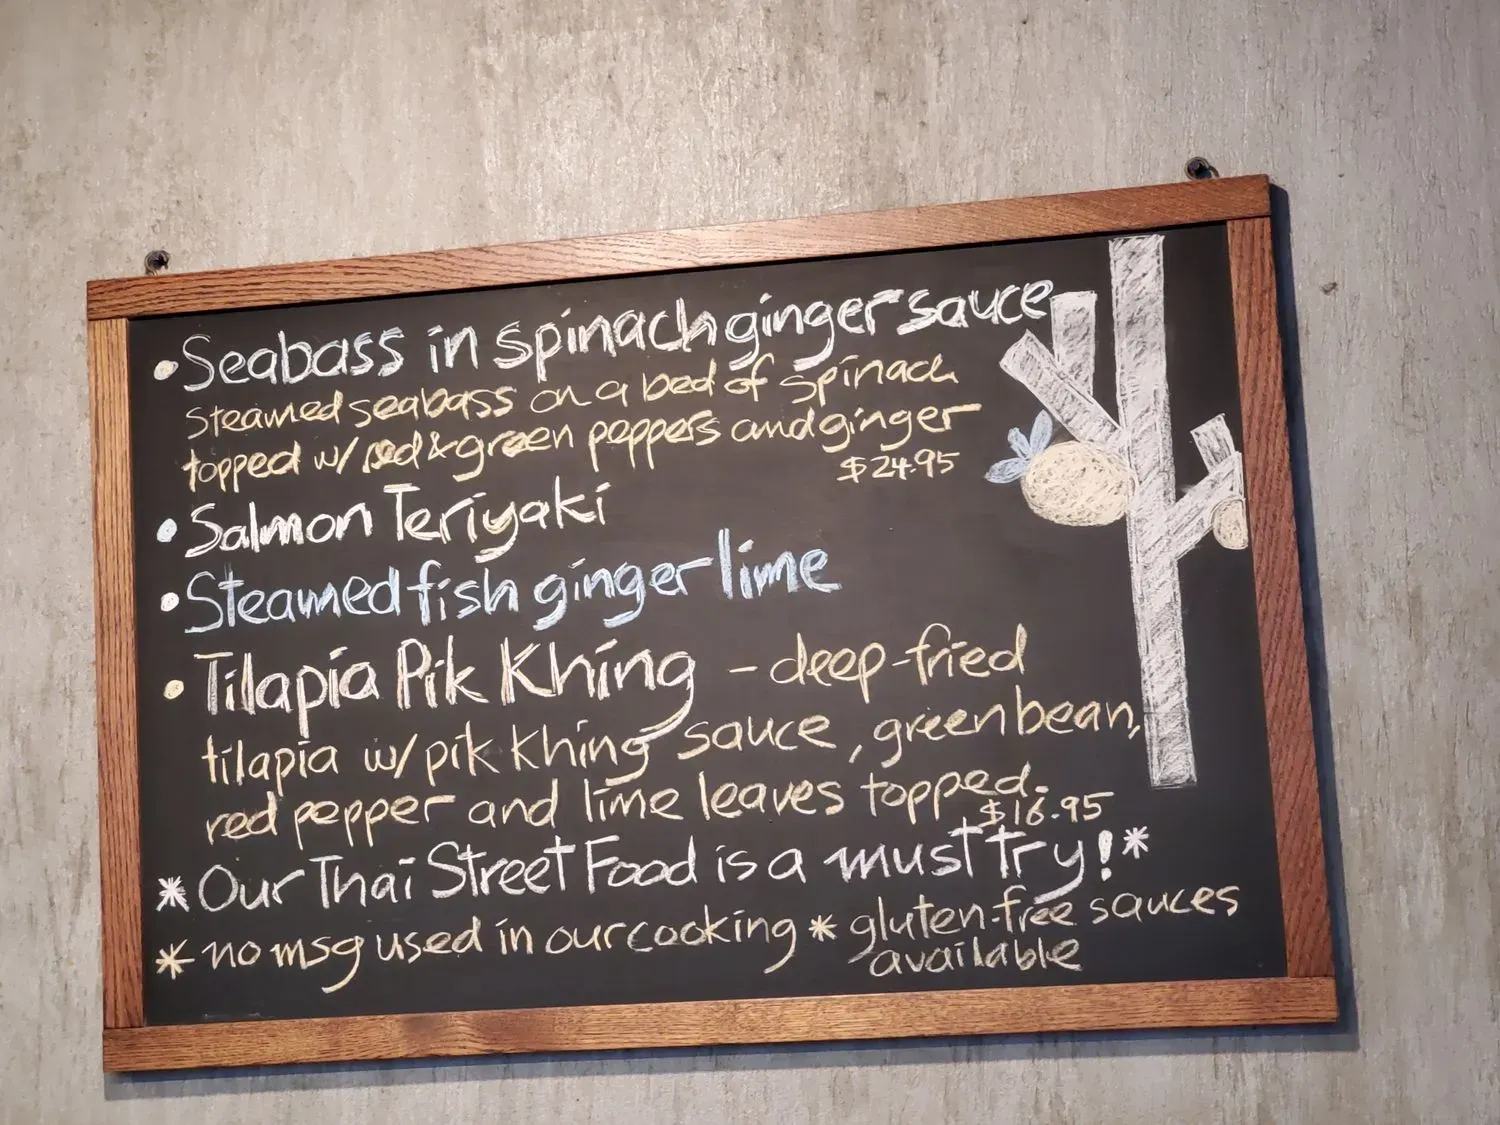 • Seabass in spinach ginger sauce
steamed seabass on a bed of spinach
topped w/ red & green peppers and ginger
$24.95
• Salmon Teriyaki
• Steamed fish ginger lime
• Tilapia Pik Khing - deep-fried
tilapia w/ pik khing sauce, green bean,
red pepper and lime leaves topped.
$16.95
* Our Thai Street Food is a must try! *
* no msg used in our cooking * gluten-free sauces
available